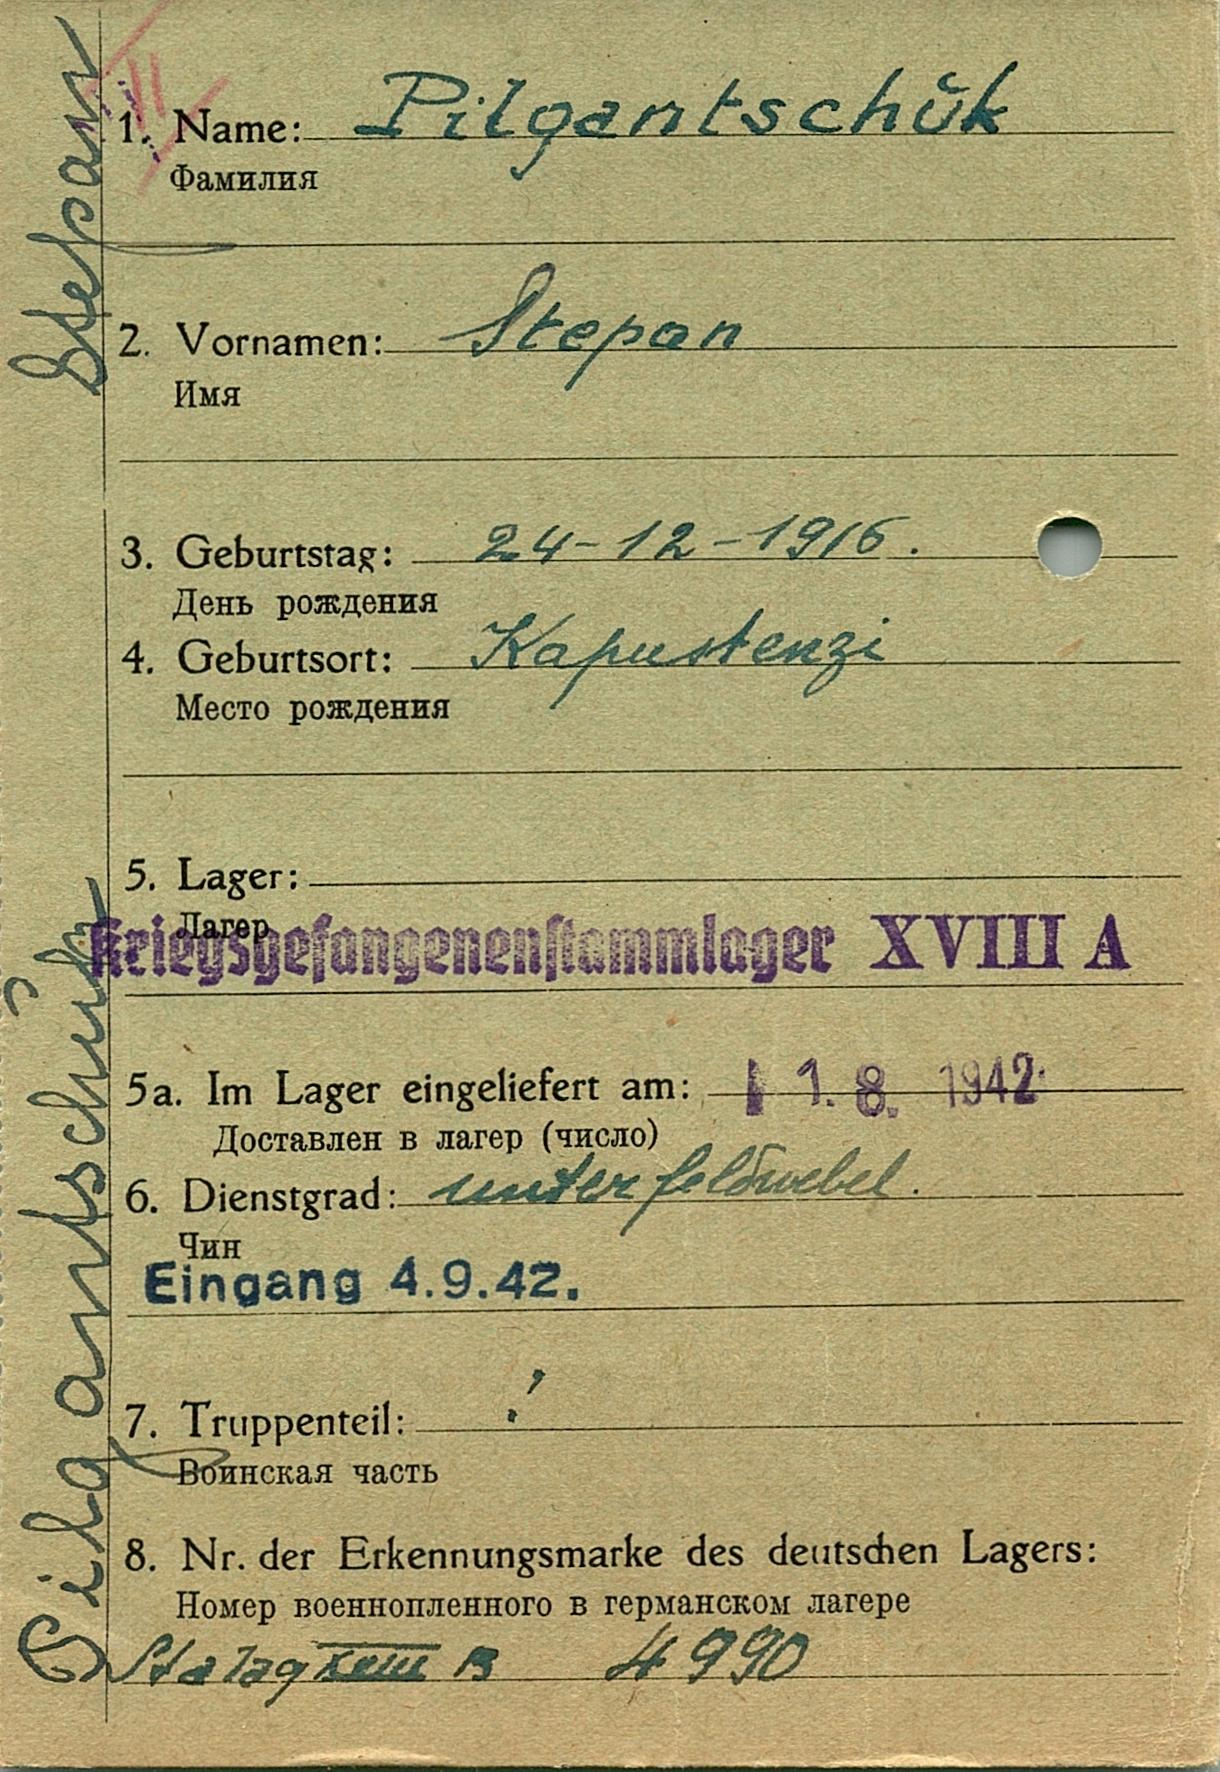 Pilgantschŭk Stepan
II
1. Name: Pilgantschŭk
Фамилия
2. Vornamen: Stepan
Имя
3. Geburtstag: 24-12-1916.
День рождения
4. Geburtsort: Kapustenzi
Место рождения
5. Lager:
Лагер
Kriegsgefangenenstammlager XVIII A
5a. Im Lager eingeliefert am: 1. 8. 1942
Доставлен в лагер (число)
6. Dienstgrad: unterfeldwebel.
Чин
Eingang 4.9.42.
7. Truppenteil: !
Воинская часть
8. Nr. der Erkennungsmarke des deutschen Lagers:
Номер военнопленного в германском лагере
Stalag XVIII B 4990